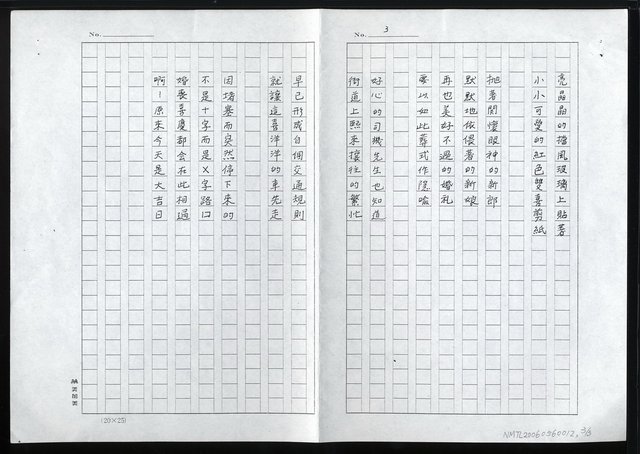 No. 3
亮晶晶的擋風玻璃上貼著
小小可愛的紅色雙喜剪紙
拋著關懷眼神的新郎
默默地依偎著的新娘
再也美好不過的婚禮
要以如此葬式作陪嗆
好心的司機先生也知道
街道上熙來攘往的繁忙
No.
早已形成自個交通規則
就讓這喜洋洋的車先走
因堵塞而突然停下來的
不是十字而是X字路口
婚喪喜慶都會在此相遇
啊!原來今天是大吉日
(20×25)
NMTL20060960012, 3/3